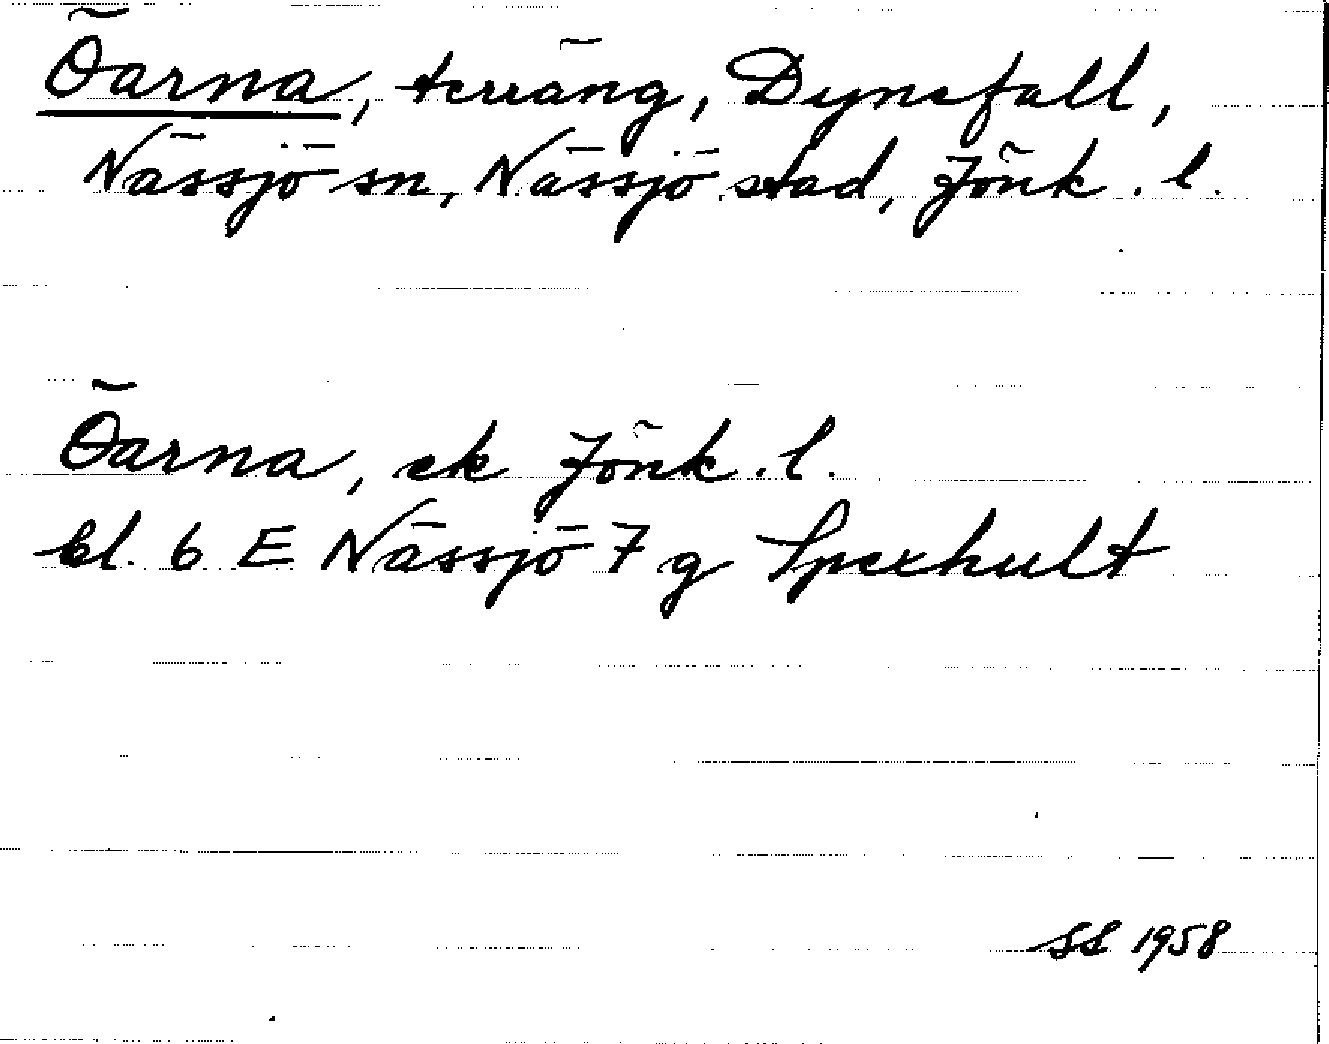 Öarna, terräng, Dynefall,
Nässjö sn, Nässjö stad, Jönk. l.
Öarna, ek Jönk. l.
bl. 6 E Nässjö 7 g Spexhult
SL 1958